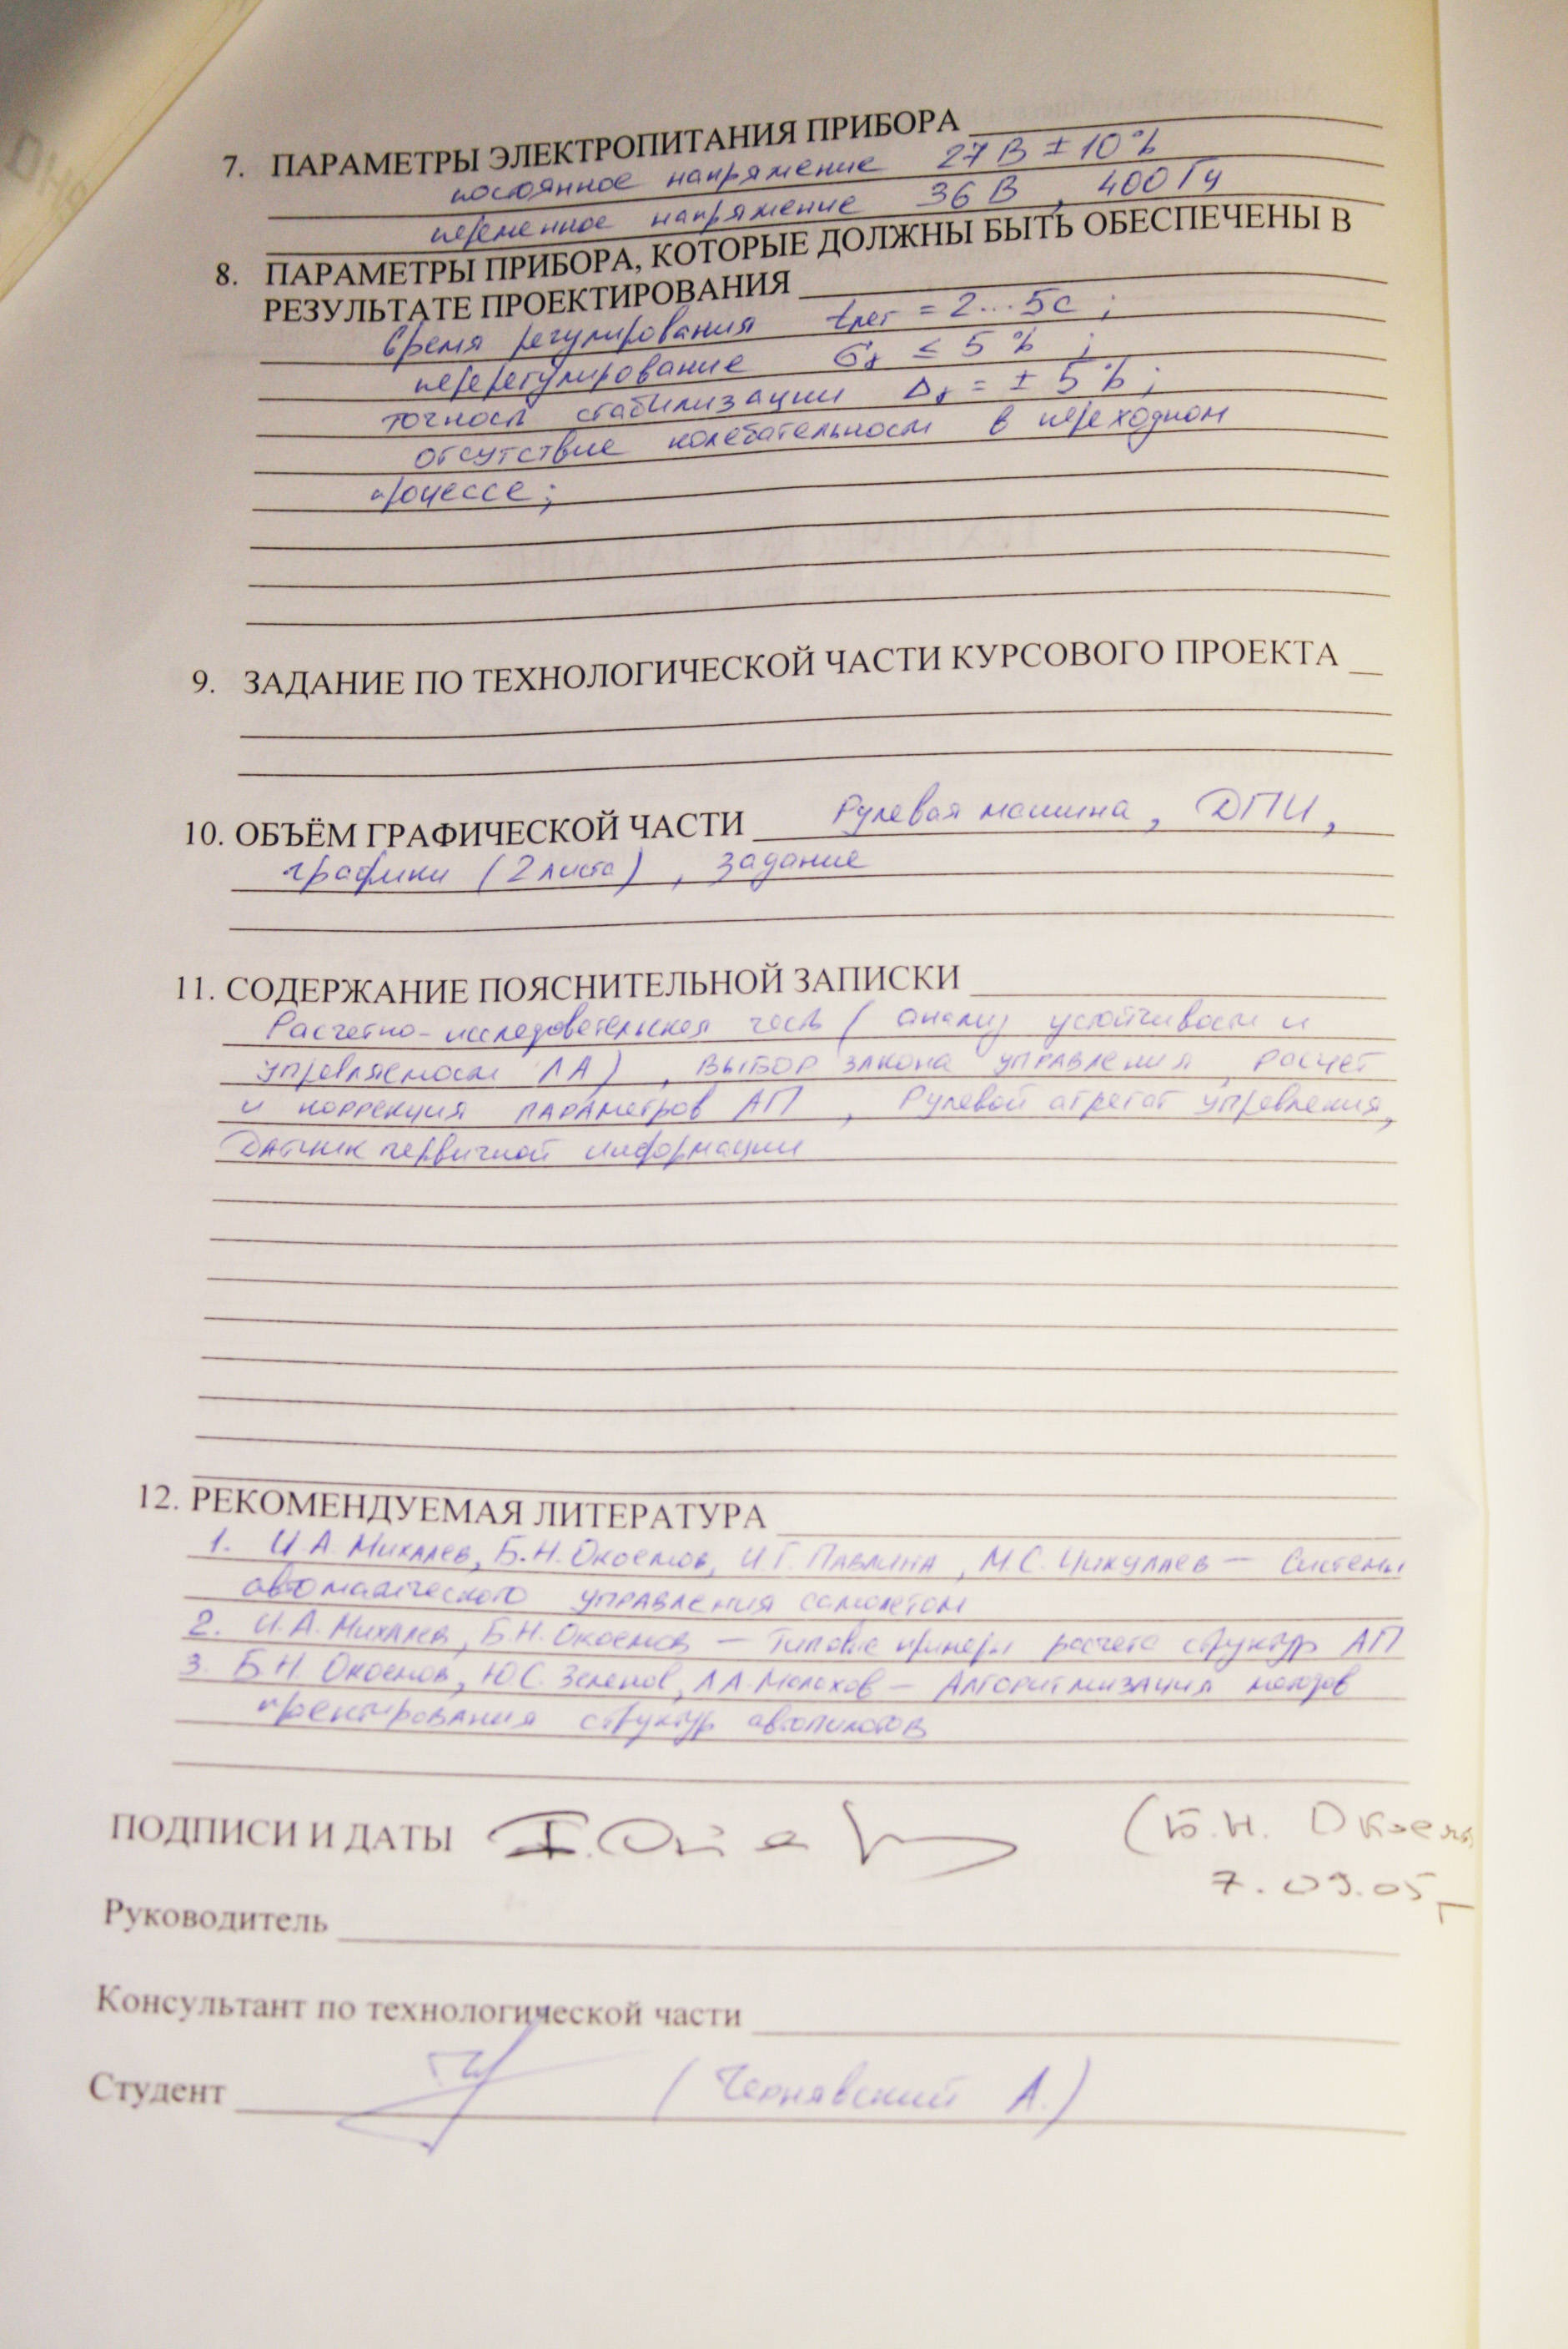 7. ПАРАМЕТРЫ ЭЛЕКТРОПИТАНИЯ ПРИБОРА
постоянное напряжение 27 В ± 10 %
переменное напряжение 36 В, 400 Гц
8. ПАРАМЕТРЫ ПРИБОРА, КОТОРЫЕ ДОЛЖНЫ БЫТЬ ОБЕСПЕЧЕНЫ В
РЕЗУЛЬТАТЕ ПРОЕКТИРОВАНИЯ
время регулирования tрег = 2...5с ;
перерегулирование ≤ 5 % ;
точность стабилизации = ± 5 % ;
отсутствие колебательности в переходном
процессе ;
9. ЗАДАНИЕ ПО ТЕХНОЛОГИЧЕСКОЙ ЧАСТИ КУРСОВОГО ПРОЕКТА
10. ОБЪЁМ ГРАФИЧЕСКОЙ ЧАСТИ Рулевая машина, ДПИ,
графики (2 листа), задание
11. СОДЕРЖАНИЕ ПОЯСНИТЕЛЬНОЙ ЗАПИСКИ
Расчетно-исследовательская часть (анализ устойчивости и
управляемости ЛА), выбор закона управления, расчет
и коррекция параметров АП, Рулевой агрегат управления,
Датчик первичной информации
12. РЕКОМЕНДУЕМАЯ ЛИТЕРАТУРА
1. И.А. Михалев, Б.Н. Окоемов, И.Г. Павлина, М.С. Чикулаев — Системы
автоматического управления самолетом
2. И.А. Михалев, Б.Н. Окоемов — Типовые примеры расчета структур АП
3. Б.Н. Окоемов, Ю.С. Зеленов, Л.А. Малахов — Алгоритмизация методов
проектирования структур автопилотов
ПОДПИСИ И ДАТЫ (Б.Н. Окоемов
7.09.05г
Руководитель
Консультант по технологической части
Студент (Чернявский А.)